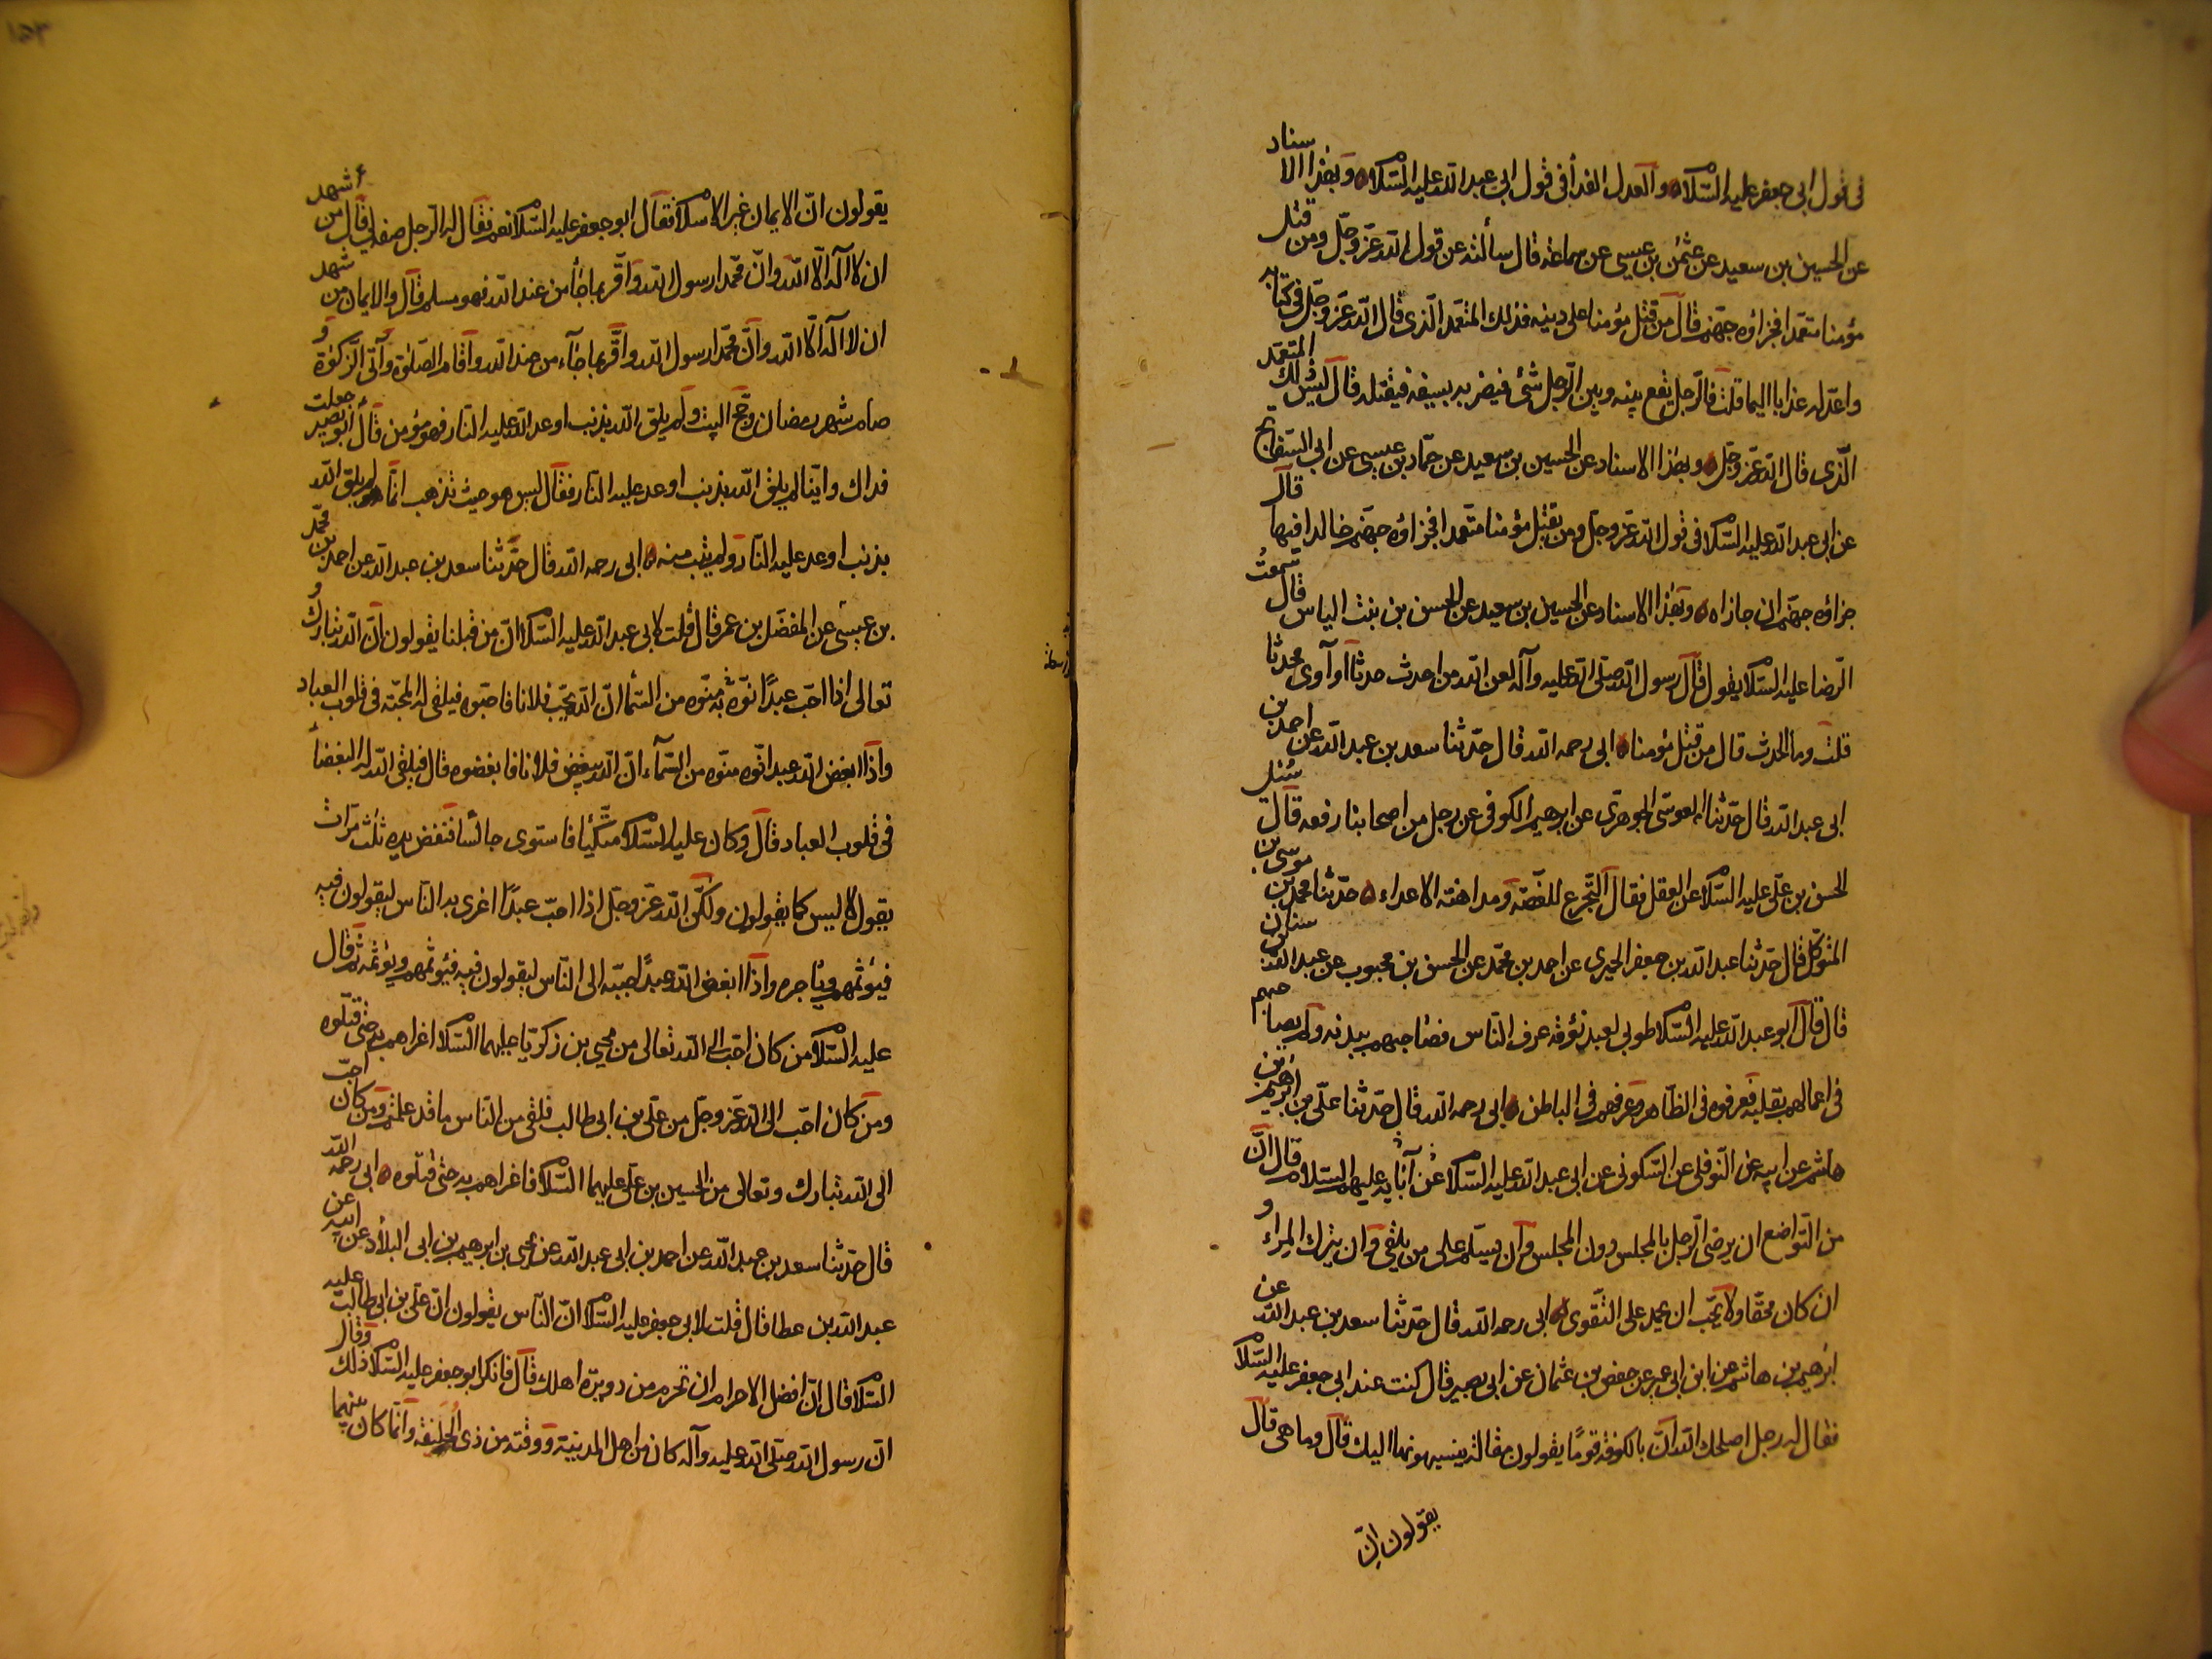 فی قول ابی جعفر علیه السّلام والعدل الفدأ فی قول ابی عبد الله علیه السّلام وبهذا الاسناد
عن الحسین بن سعید عن عثمن بن عیسی عن سماعة قال سألته عن قول الله عزّ وجلّ ومن قتل
مؤمنا متعمّدا فجزاؤه جهنّم قال من قتل مؤمنا علی دینه فذلك المتعمّد الّذی قال الله عزّ وجلّ فی کتابه
واعدّ له عذابا الیما قلت فالرّجل یقع بینه وبین الرّجل شئ فیضربه بسیفه فیقتله قال لیس ذلك المتعمّد
الّذی قال الله عزّ وجلّ وبهذا الاسناد عن الحسین بن سعید عن حمّاد بن عیسی عن ابی السّفاتج
عن ابی عبد الله علیه السّلام فی قول الله عزّ وجلّ ومن یقتل مؤمنا متعمّدا فجزاؤه جهنّم خالدا فیها قال
جزاؤه جهنّم ان جازاه وبهذا الاسناد عن الحسین بن سعید عن الحسن بن بنت الیاس قال سمعت
الرّضا علیه السّلام یقول قال رسول الله صلّی الله علیه وآله لعن الله من احدث حدثا أو آوی محدثا
قلت وما الحدث قال من قتل مؤمنا ابی رحمه الله قال حدّثنا سعد بن عبد الله عن احمد بن
ابی عبد الله قال حدّثنا العوسی الجوهری عن ابرهیم الکوفی عن رجل من اصحابنا رفعه قال سئل
الحسن بن علی علیه السّلام عن العقل فقال التّجرع للغصّة ومداهنة الاعداء حدّثنا محمد بن موسی بن
المتوکّل قال حدّثنا عبد الله بن جعفر الحمیری عن احمد بن محمّد عن الحسن بن محبوب عن عبد الله بن سنان
قال قال ابو عبد الله علیه السّلام طوبی لعبد نؤمة عرف النّاس فصاحبهم ببدنه ولم یصاحبهم
فی اعمالهم بقلبه فعرفوه فی الظّاهر وعرفهم فی الباطن ابی رحمه الله قال حدّثنا علی بن ابرهیم بن
هاشم عن ابیه عن النّوفلی عن السّکونی عن ابی عبد الله علیه السّلام عن آبائه علیهم السّلام قال انّ
من التّواضع ان یرضی الرّجل بالمجلس دون المجلس وان یسلّم علی من یلقی وان یترك المراء و
ان کان محقّا ولا یحبّ ان یحمد علی التّقوی ابی رحمه الله قال حدّثنا سعد بن عبد الله عن
ابرهیم بن هاشم عن ابن ابی عمیر عن حفص بن عثمان عن ابی بصیر قال کنت عند ابی جعفر علیه السّلام
فقال له رجل اصلحك الله انّ بالکوفة قوما یقولون مقالة ینسبونها الیك قال وما هی قال
یقولون انّ
یقولون انّ الایمان غیر الاسلام فقال ابو جعفر علیه السّلام نعم فقال له الرّجل صفه لی قال من أشهد
ان لا اله الّا الله وانّ محمّدا رسول الله وأقرّ بما جأ من عند الله فهو مسلم قال والایمان من شهد
ان لا اله الّا الله وانّ محمّدا رسول الله واقرّ بما جاء من عند الله واقام الصّلوة وآتی الزّکوة و
صام شهر رمضان وحجّ البیت ولم یلق الله بذنب اوعد الله علیه النّار فهو مؤمن قال ابو بصیر جعلت
فداك واینا لم یلق الله بذنب اوعد علیه النّار فقال لیس هو حیث تذهب انّما هو لم یلق الله
بذنب اوعد علیه النّار ولم یتب منه ابی رحمه الله قال حدّثنا سعد بن عبد الله عن احمد بن محمّد
بن عیسی عن المفضّل بن عمر قال قلت لابی عبد الله علیه السّلام انّ من قبلنا یقولون انّ الله تبارك و
تعالی اذا احبّ عبدًا نوّه به منوّه من السّماء انّ الله یحبّ فلانا فاحبّوه فیلقی له المحبّة فی قلوب العباد
واذا ابغض الله عبدا نوّه منوّه من السّمآء انّ الله یبغض فلانا فابغضوه قال فیلقی الله له البغضاء
فی قلوب العباد قال وکان علیه السّلام متّکیأ فاستوی جالسا فنفض یده ثلث مرّات
یقول لا لیس کما یقولون ولکن الله عزّ وجلّ اذا احبّ عبدًا اغری به النّاس لیقولون فیه
فیؤثمهم ویأجره واذا ابغض الله عبدًا حبّبه الی النّاس لیقولون فیه فیؤثمهم ویؤثمه ثم قال
علیه السّلام من کان احبّ الی الله تعالی من یحیی بن زکریّا علیهما السّلام اغراهم به حتی قتلوه
ومن کان احبّ الی الله عزّ وجلّ من علی بن ابی طالب فلقی من النّاس ما قد علمتم ومن کان احبّ
الی الله تبارك وتعالی من الحسین بن علی علیهما السّلام فاغراهم به حتی قتلوه ابی رحمه الله
قال حدّثنا سعد بن عبد الله عن احمد بن ابی عبد الله عن یحیی بن ابرهیم بن ابی البلاد عن ابیه عن
عبد الله بن عطا قال قلت لابی جعفر علیه السّلام انّ النّاس یقولون انّ علی بن ابی طالب علیه
السّلام قال انّ افضل الاحرام ان تحرم من دویرة اهلك قال فانکر ابو جعفر علیه السّلام ذلك وقال
انّ رسول الله صلّی الله علیه وآله کان من اهل المدینة ووقته من ذی الحلیفة وانّما کان بینهما